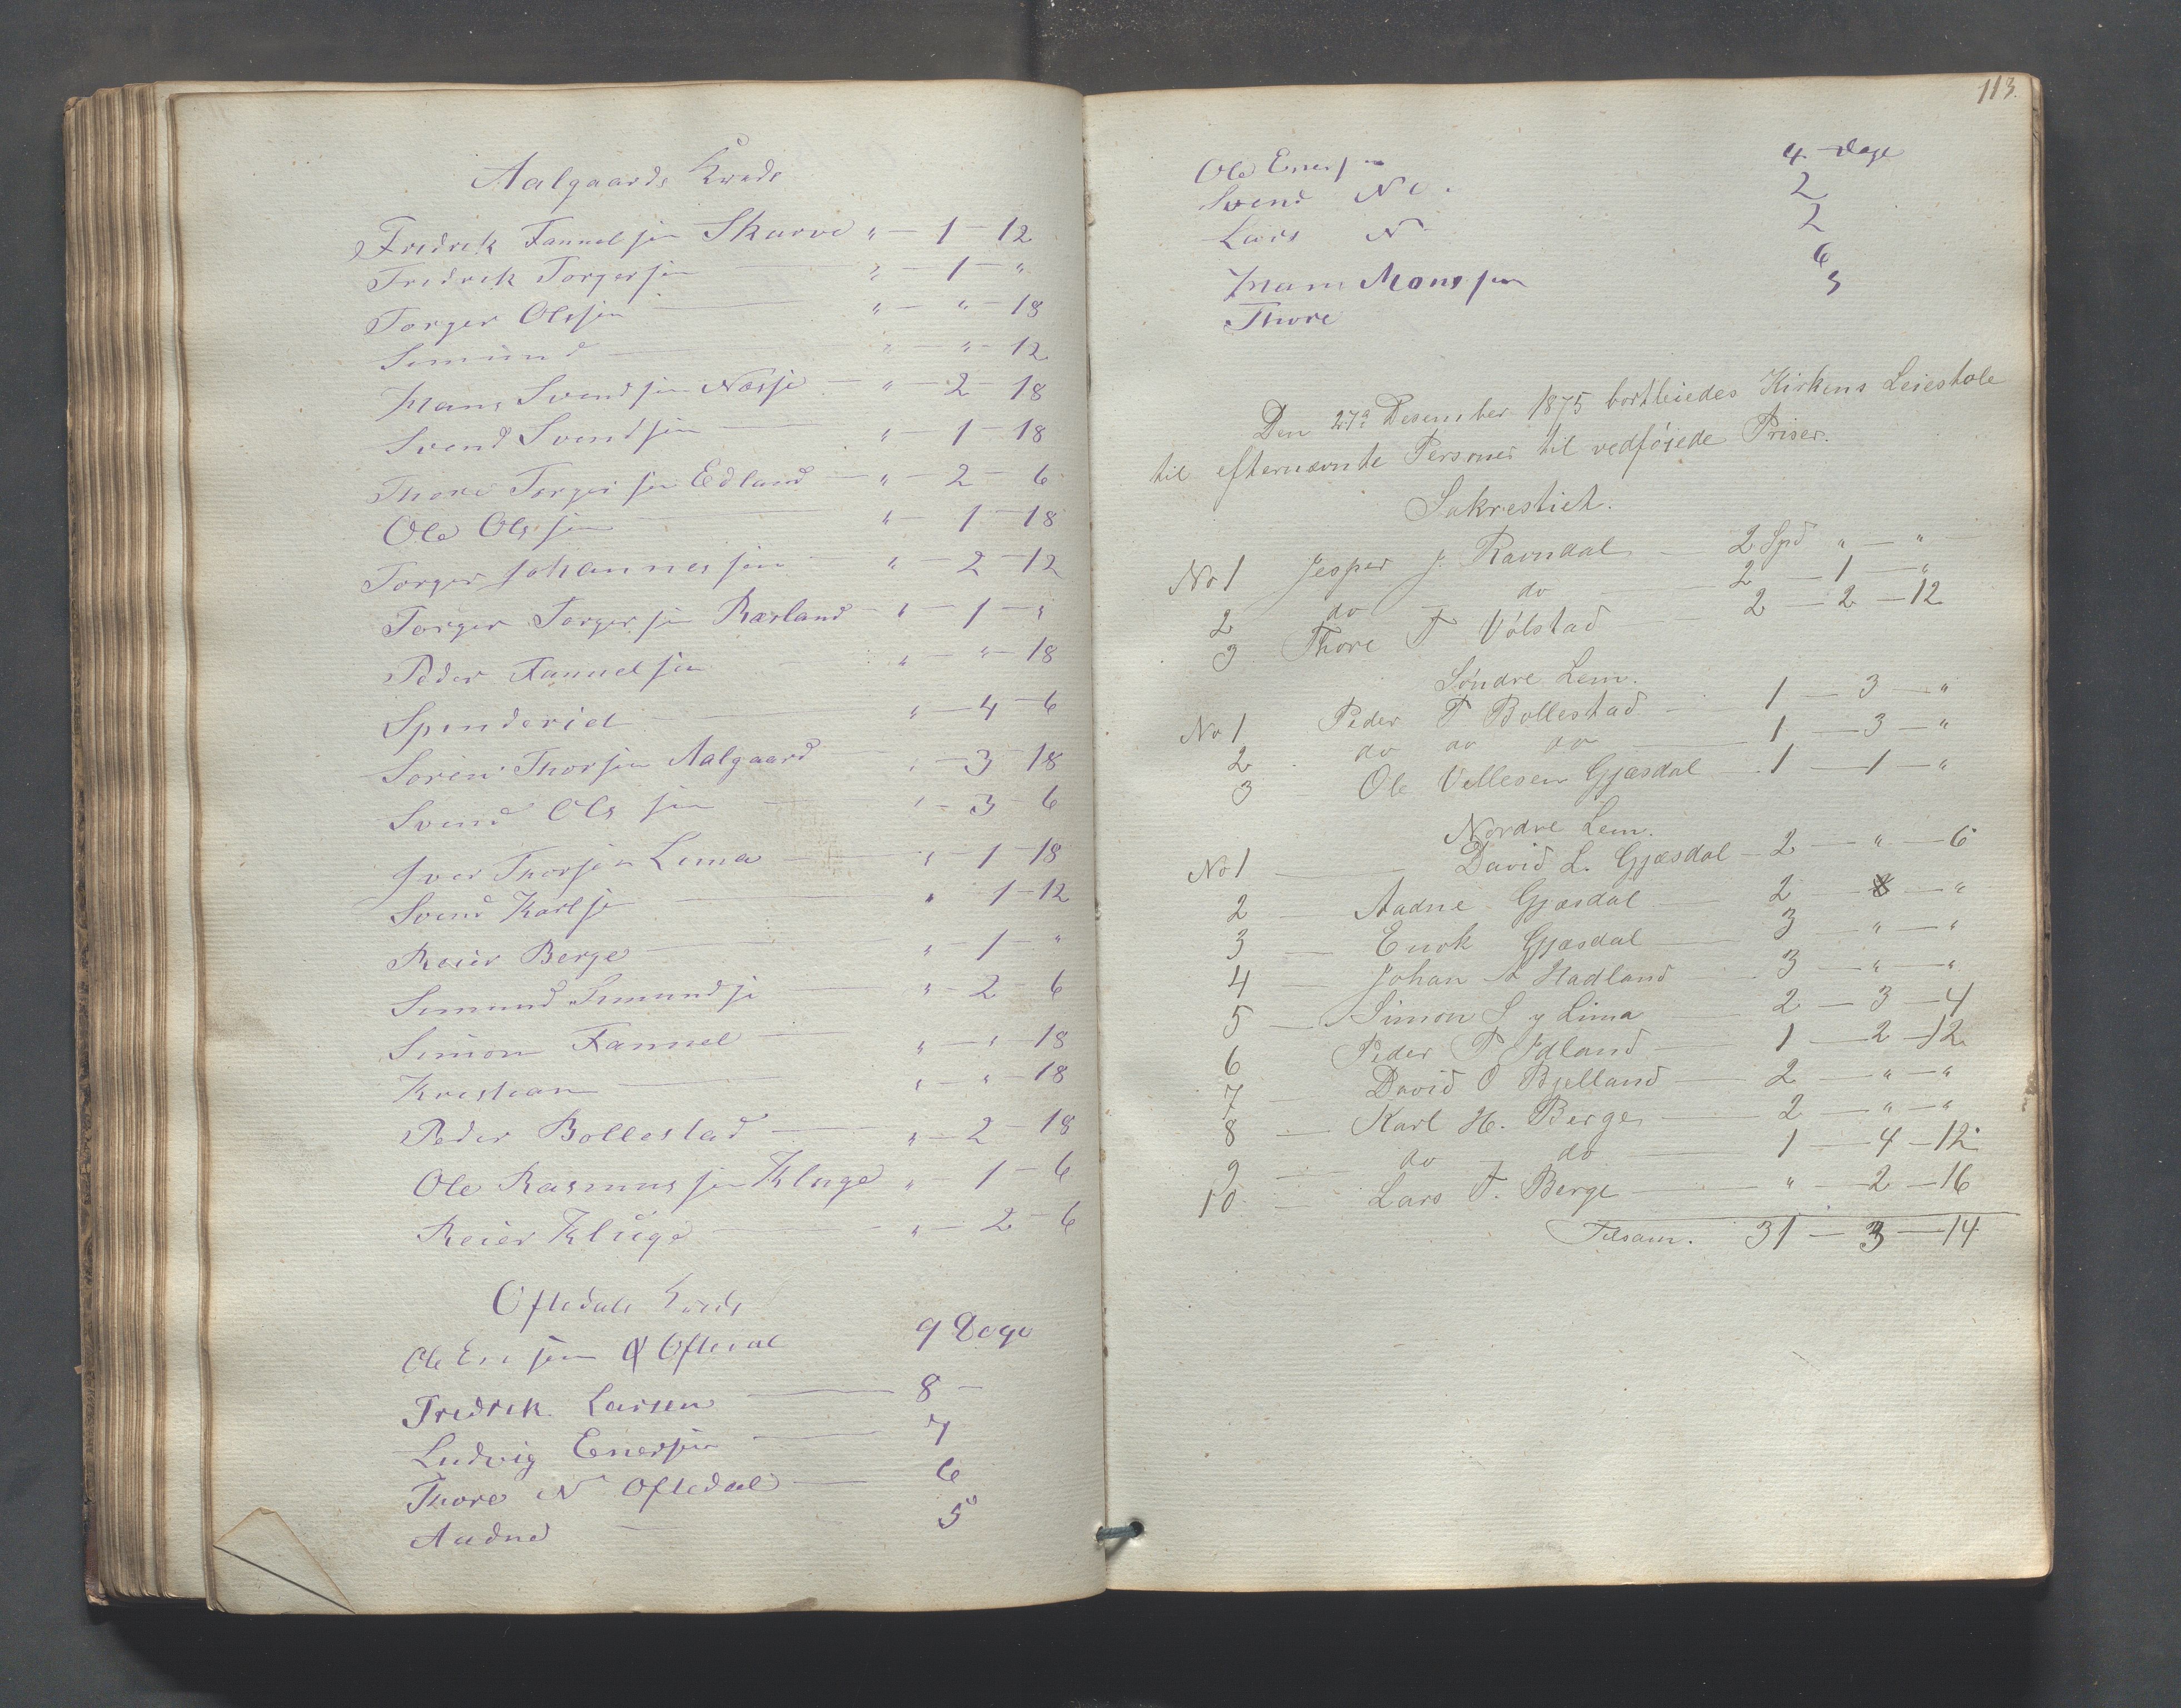 Aalgaards Kreds
Fredrik Fannuelsen Skurve " — 1 — 12
Fredrik Torgersen — " — 1 — "
Torger Olssen — " — " — 18
Simund — " — " — 12
Hans Svendsen Næsse — " — 2 — 18
Svend Svendsen — " — 1 — 18
Thore Torgersen Edland — " — 2 — 6
Ole Olssen — " — 1 — 18
Torger Johannessen — " — 2 — 12
Torger Torgersen Rærland — " — 1 — "
Peder Fannuelsen — " — " — 18
Spinderiet — " — 4 — 6
Soren Thorsen Aalgaard — " — 3 — 18
Svend Olssen — " — 3 — 6
Iver Thorsen Lima — " — 1 — 18
Svend Karlsen — " 1 — 12
Reier Berge — " — 1 — "
Simund Simundsen — " — 2 — 6
Simon Fannuel — " — " — 18
Kristian — " — " — 18
Peder Bollestad — " — 2 — 18
Ole Rasmussen Kluge " — 1 — 6
Reier Kluge — " — 2 — 6
Oftedals Kreds
Ole Enersen Oftedal 9 Dage
Fredrik Larsen — 8 —
Ludvig Enersen — 7
Thore N Oftedal — 6
Aadne — 5
113.
Ole Enersen 4 Dage
Svend N 2
Lars N 2
Hans Monssen 6
Thore 3
Den 27de Desember 1875 bortleiedes Kirkens Leiestole
til efternævnte Personer til vedføiede Priser.
Sakrestiet.
No 1 Jesper J. Ravndal — 2 Spd " — "
2 do — do — 2 — 1 — "
3 Thore T Vølstad — 2 — 2 — 12
Søndre Lem.
No 1 Peder T Bollestad — 1 — 3 — "
2 do do do — 1 — 3 — "
3 Ole Villesen Gjæsdal — 1 — 1 — "
Nordre Lem.
No 1 — David L. Gjæsdal — 2 — " — 6
2 — Aadne Gjæsdal — 2 — — "
3 — Enok Gjæsdal — 3 — " — "
4 — Johan A Hadland — 3 — " — "
5 — Simon S y Lima — 2 — 3 — 4
6 Peder P Edland — 1 — 2 — 12
7 — David O Bjelland — 2 — " — "
8 — Karl H. Berge — 2 — " — "
9 — do — do — 1 — 4 — 12
10 — Lars T. Berge — " — 2 — 16
Tilsam. 31 — 3 — 14